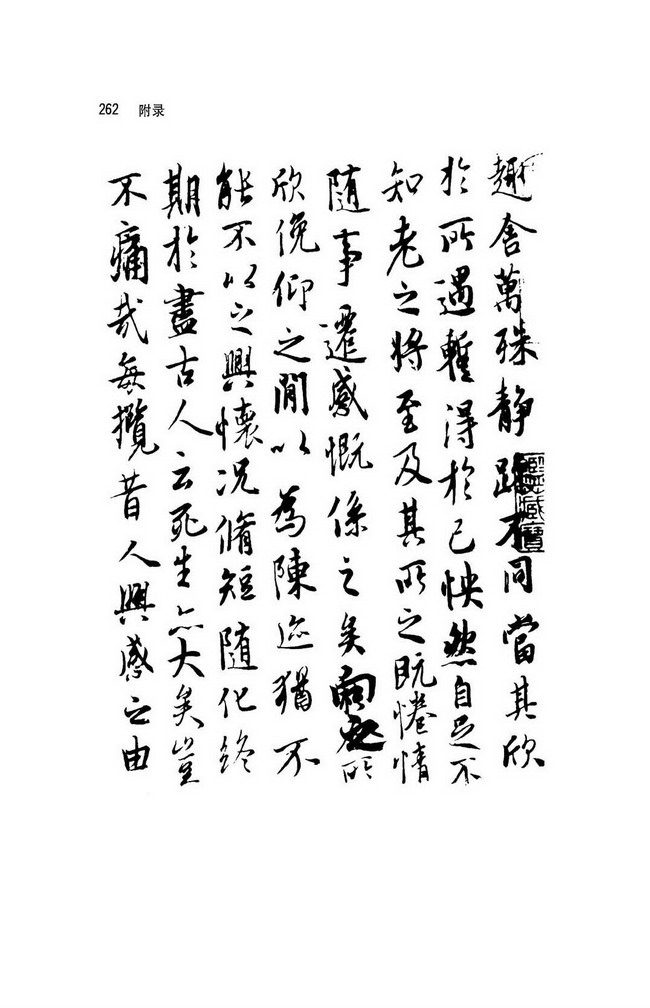 262 附录
趣舍萬殊静躁不同當其欣
於所遇暫得於己怏然自足不
知老之將至及其所之既惓情
随事遷感慨係之矣向之所
欣俛仰之閒以為陳迹猶不
能不以之興懷况脩短随化終
期於盡古人云死生亦大矣豈
不痛哉每攬昔人興感之由